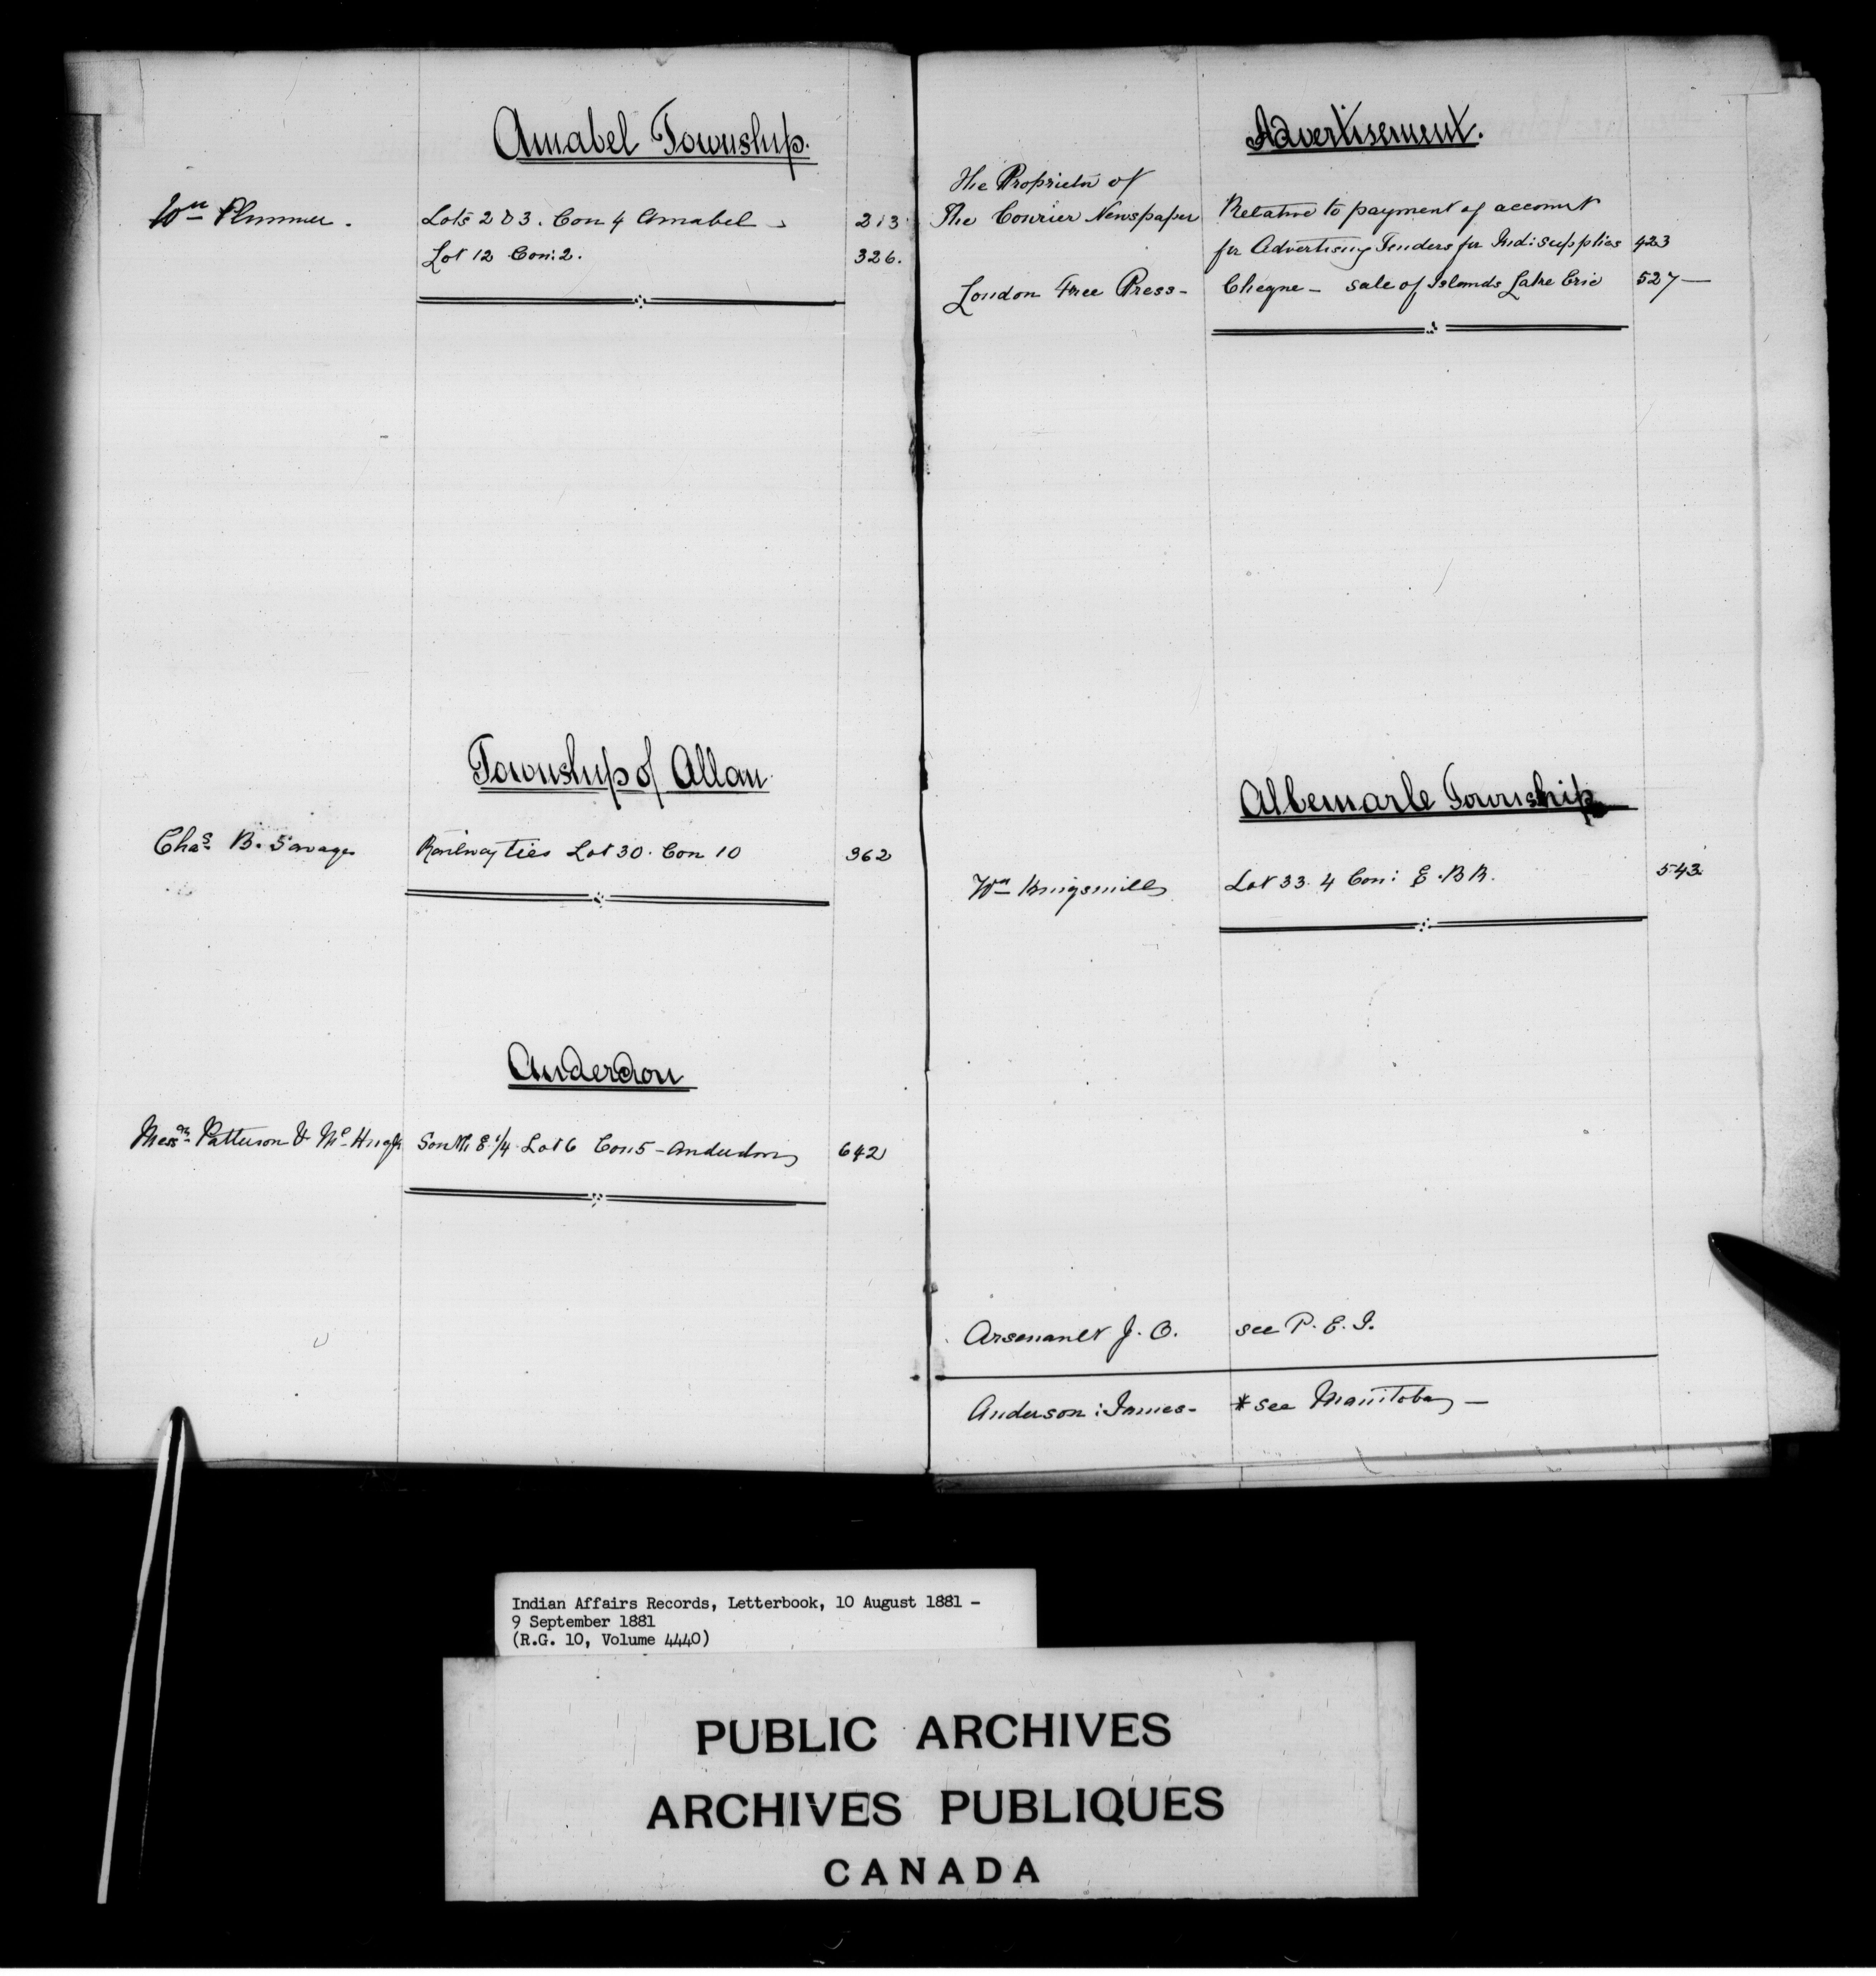 Amabel Township.
Wm Plummer. Lots 2 & 3. Con 4 Amabel 213
Lot 12 Con: 2. 326.
Township of Allan
Chas. B. Savage Railway ties Lot 30. Con 10 362
Anderdon
Messrs Patterson & McHugh South E 1/4 Lot 6 Con 5 - Anderdon 642
Advertisement.
The Proprietor of
The Courier Newspaper Relative to payment of account
for Advertising Tenders for Ind: Supplies 423
London Free Press - Cheque - sale of Islands Lake Erie 527 —
Albemarle Township
Wm Kingsmill Lot 33. 4 Con: E. B R. 543
Arsenault J. O. see P. E. I.
Anderson: James - * see Manitoba —
Indian Affairs Records, Letterbook, 10 August 1881 -
9 September 1881
(R.G. 10, Volume 4440)
PUBLIC ARCHIVES
ARCHIVES PUBLIQUES
CANADA